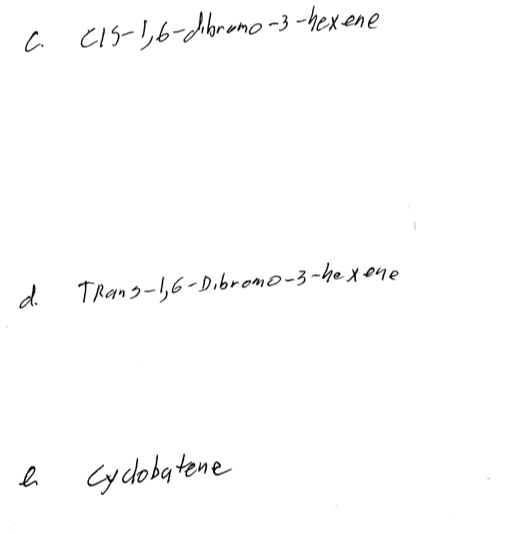 c. cis-1,6-dibromo-3-hexene
d. TRans-1,6-Dibromo-3-hexene
e cyclobatene